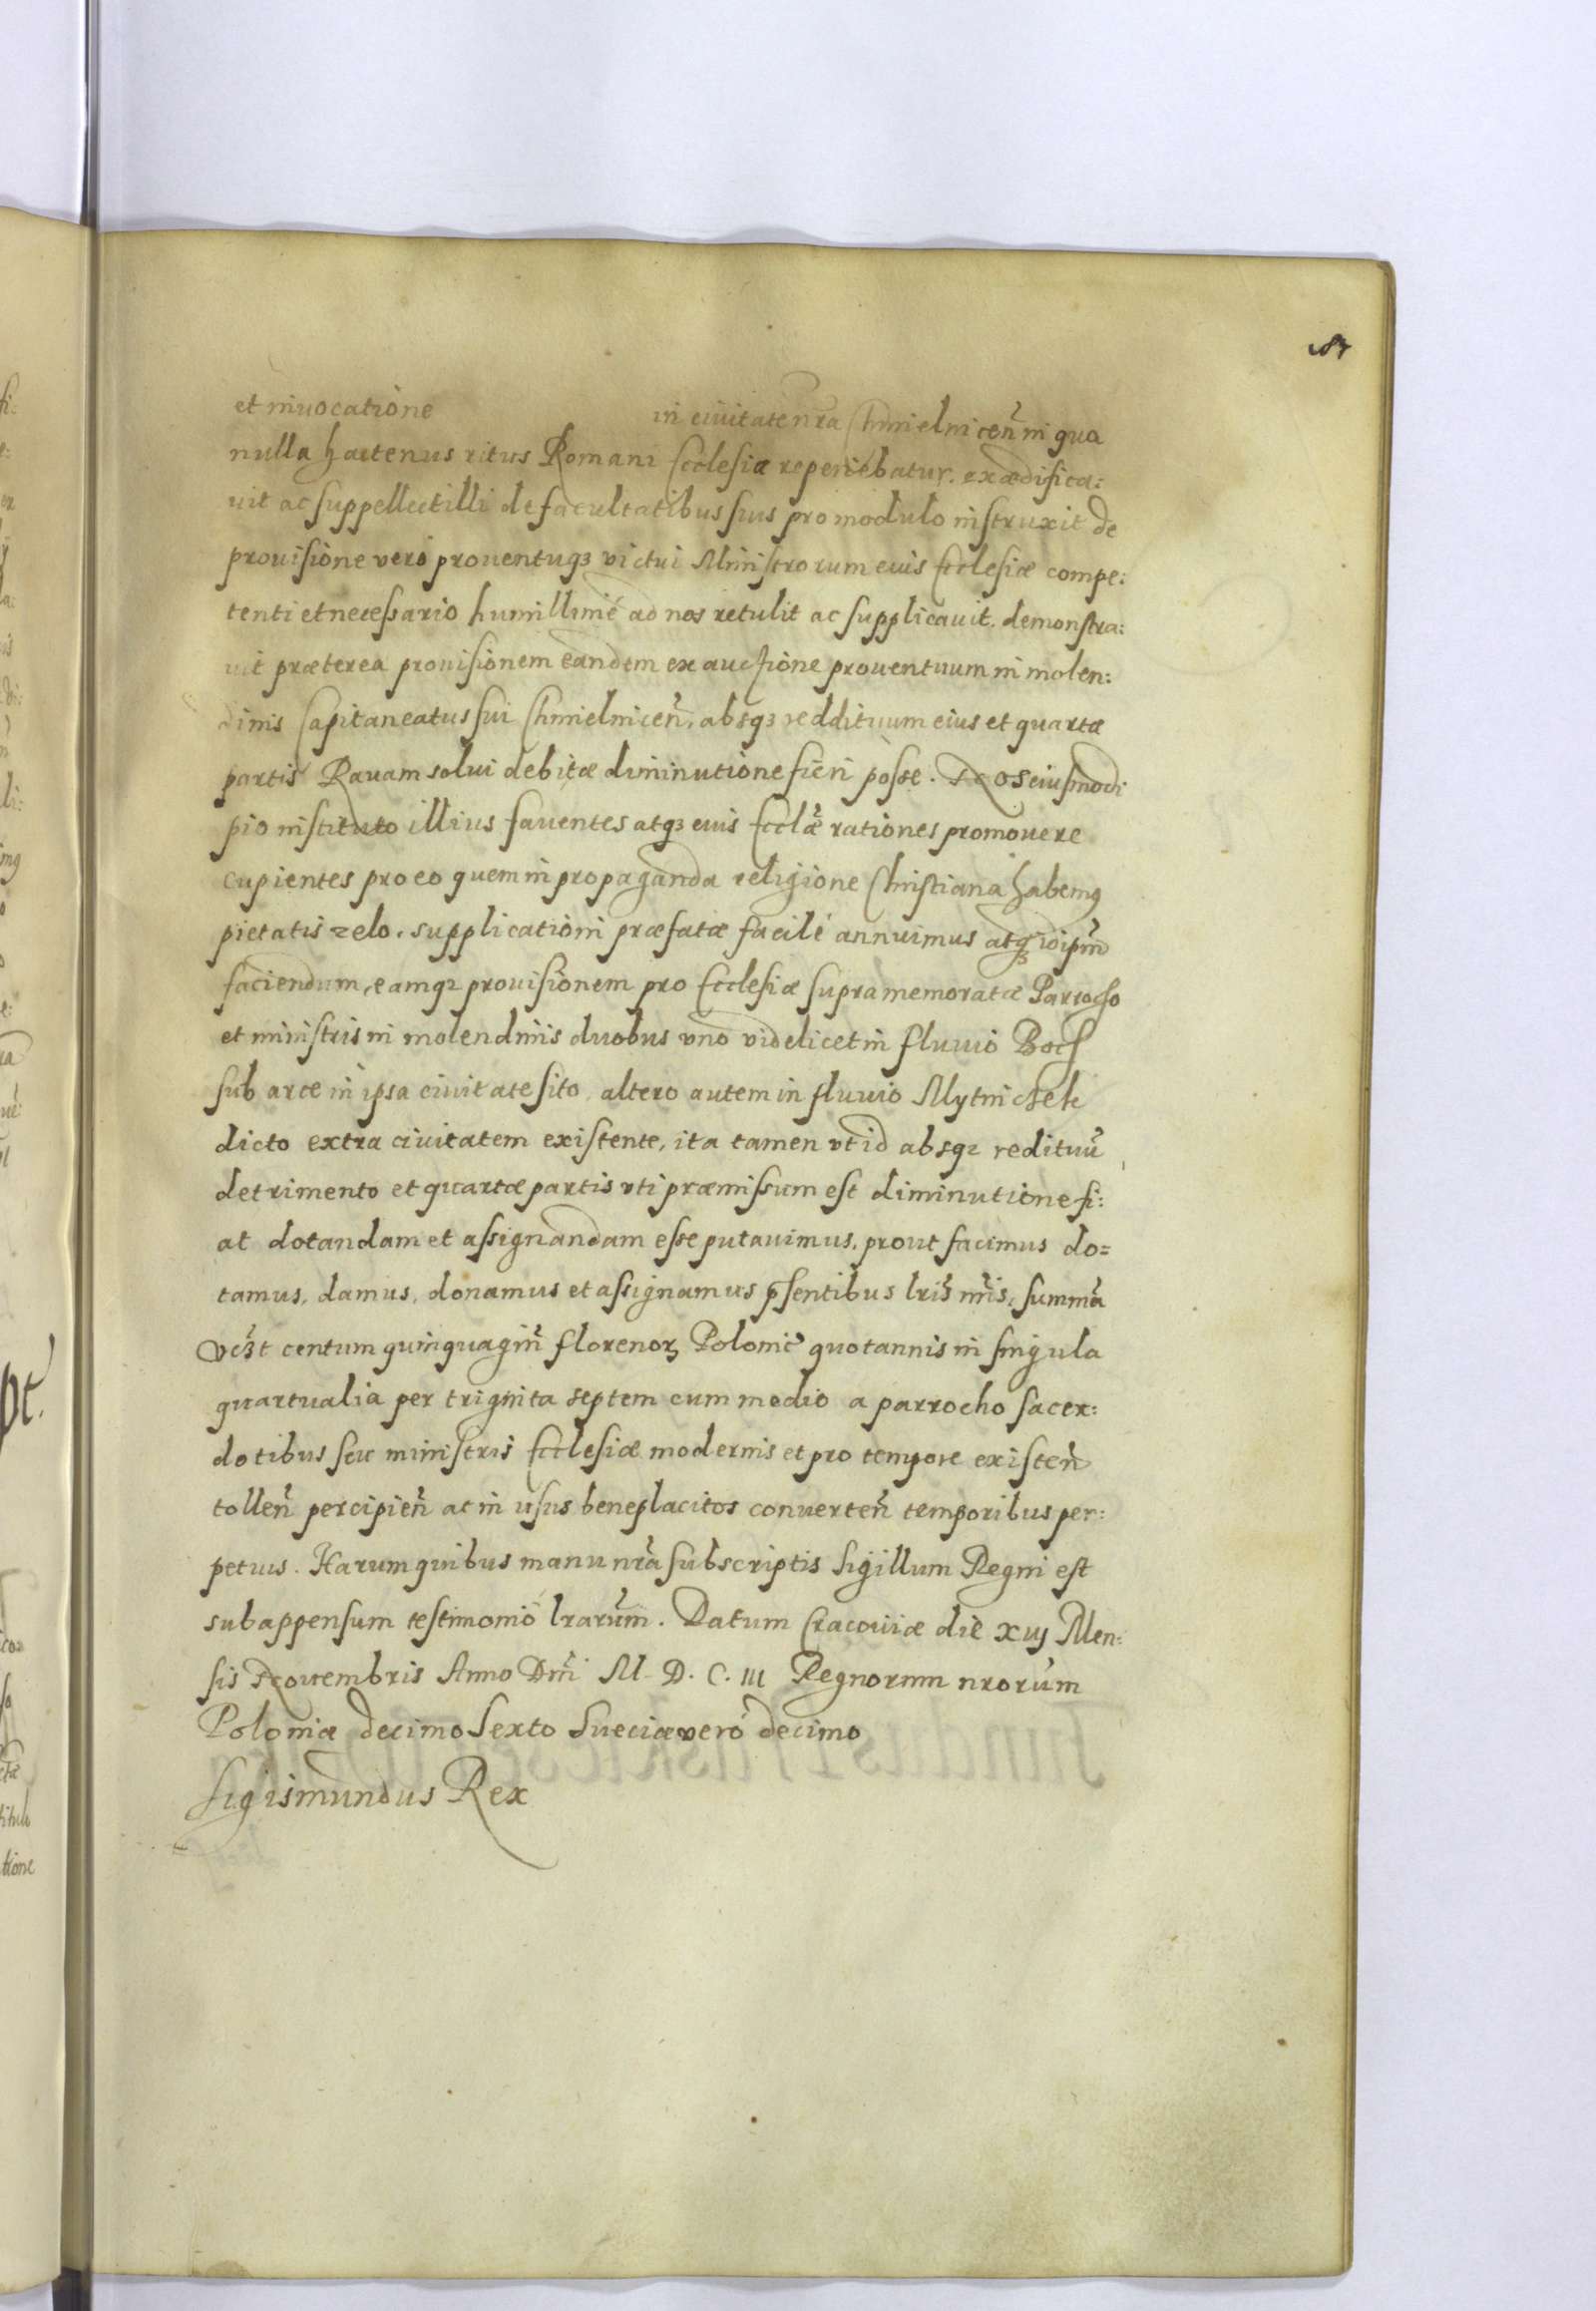 187
et inuocatione in ciuitate nr̃a Chmielnicen̄ in qua
nulla hactenus ritus Romani Ecclesiæ reperiebatur. exædifica:
uit ac suppellectilli de facultatibus suis pro modulo instruxit de
prouisione vero prouentuq₃ victui Ministrorum euis Ecclesiæ compe:
tenti et necessario humillimé ad nos retulit ac supplicauit. demonstra:
uit præterea prouisionem eandem ex auctione prouentuum in molen:
dinis Capitaneatus sui Chmielnicen̄, absq₃ reddituum eius et quartæ
partis Rauam solui debitæ diminutione fieri posse. Nos eiusmodi
pio instituto illius fauentes atq₃ euis Ecclæ̃ rationes promouere
cupientes pro eo quem in propaganda religione Christiana habemꝰ
pietatis zelo, supplicationi præfatæ facilé annuimus atq₃ idipm̃
faciendum, eamq₃ prouisionem pro Ecclesiæ supra memoratæ Parrocho
et ministris in molendinis duobus vno videlicet in fluuio Boch
sub arce in ipsa ciuitate sito altero autem in fluuio Mytnichek
dicto extra ciuitatem existente, ita tamen vt id absq₃ redituū
detrimento et quartæ partis vti præmissum est diminutione fi:
at dotandam et assignandam esse putauimus. prout facimus do=
tamus, damus, donamus et assignamus p̄sentibus lr̃is nr̃is, summā
vc₃t centum quinquagin̄ florenoꝝ Polonic̃ quotannis in singula
quartualia per triginta septem cum medio a parrocho sacer:
dotibus seu ministris Ecclesiæ modernis et pro tempore existen̄
tollen̄ percipien̄ ac in usus beneplacitos conuerten̄ temporibus per:
petuis. Harum quibus manu nr̃a subscriptis Sigillum Regni est
subappensum testimonio lr̃arum. Datum Cracouiæ die xiij Men:
sis Nouembris Anno Dnĩ M. D. C. III Regnorum nr̃orum
Poloniæ decimo Sexto Sueciæ veró decimo
Sigismundus Rex